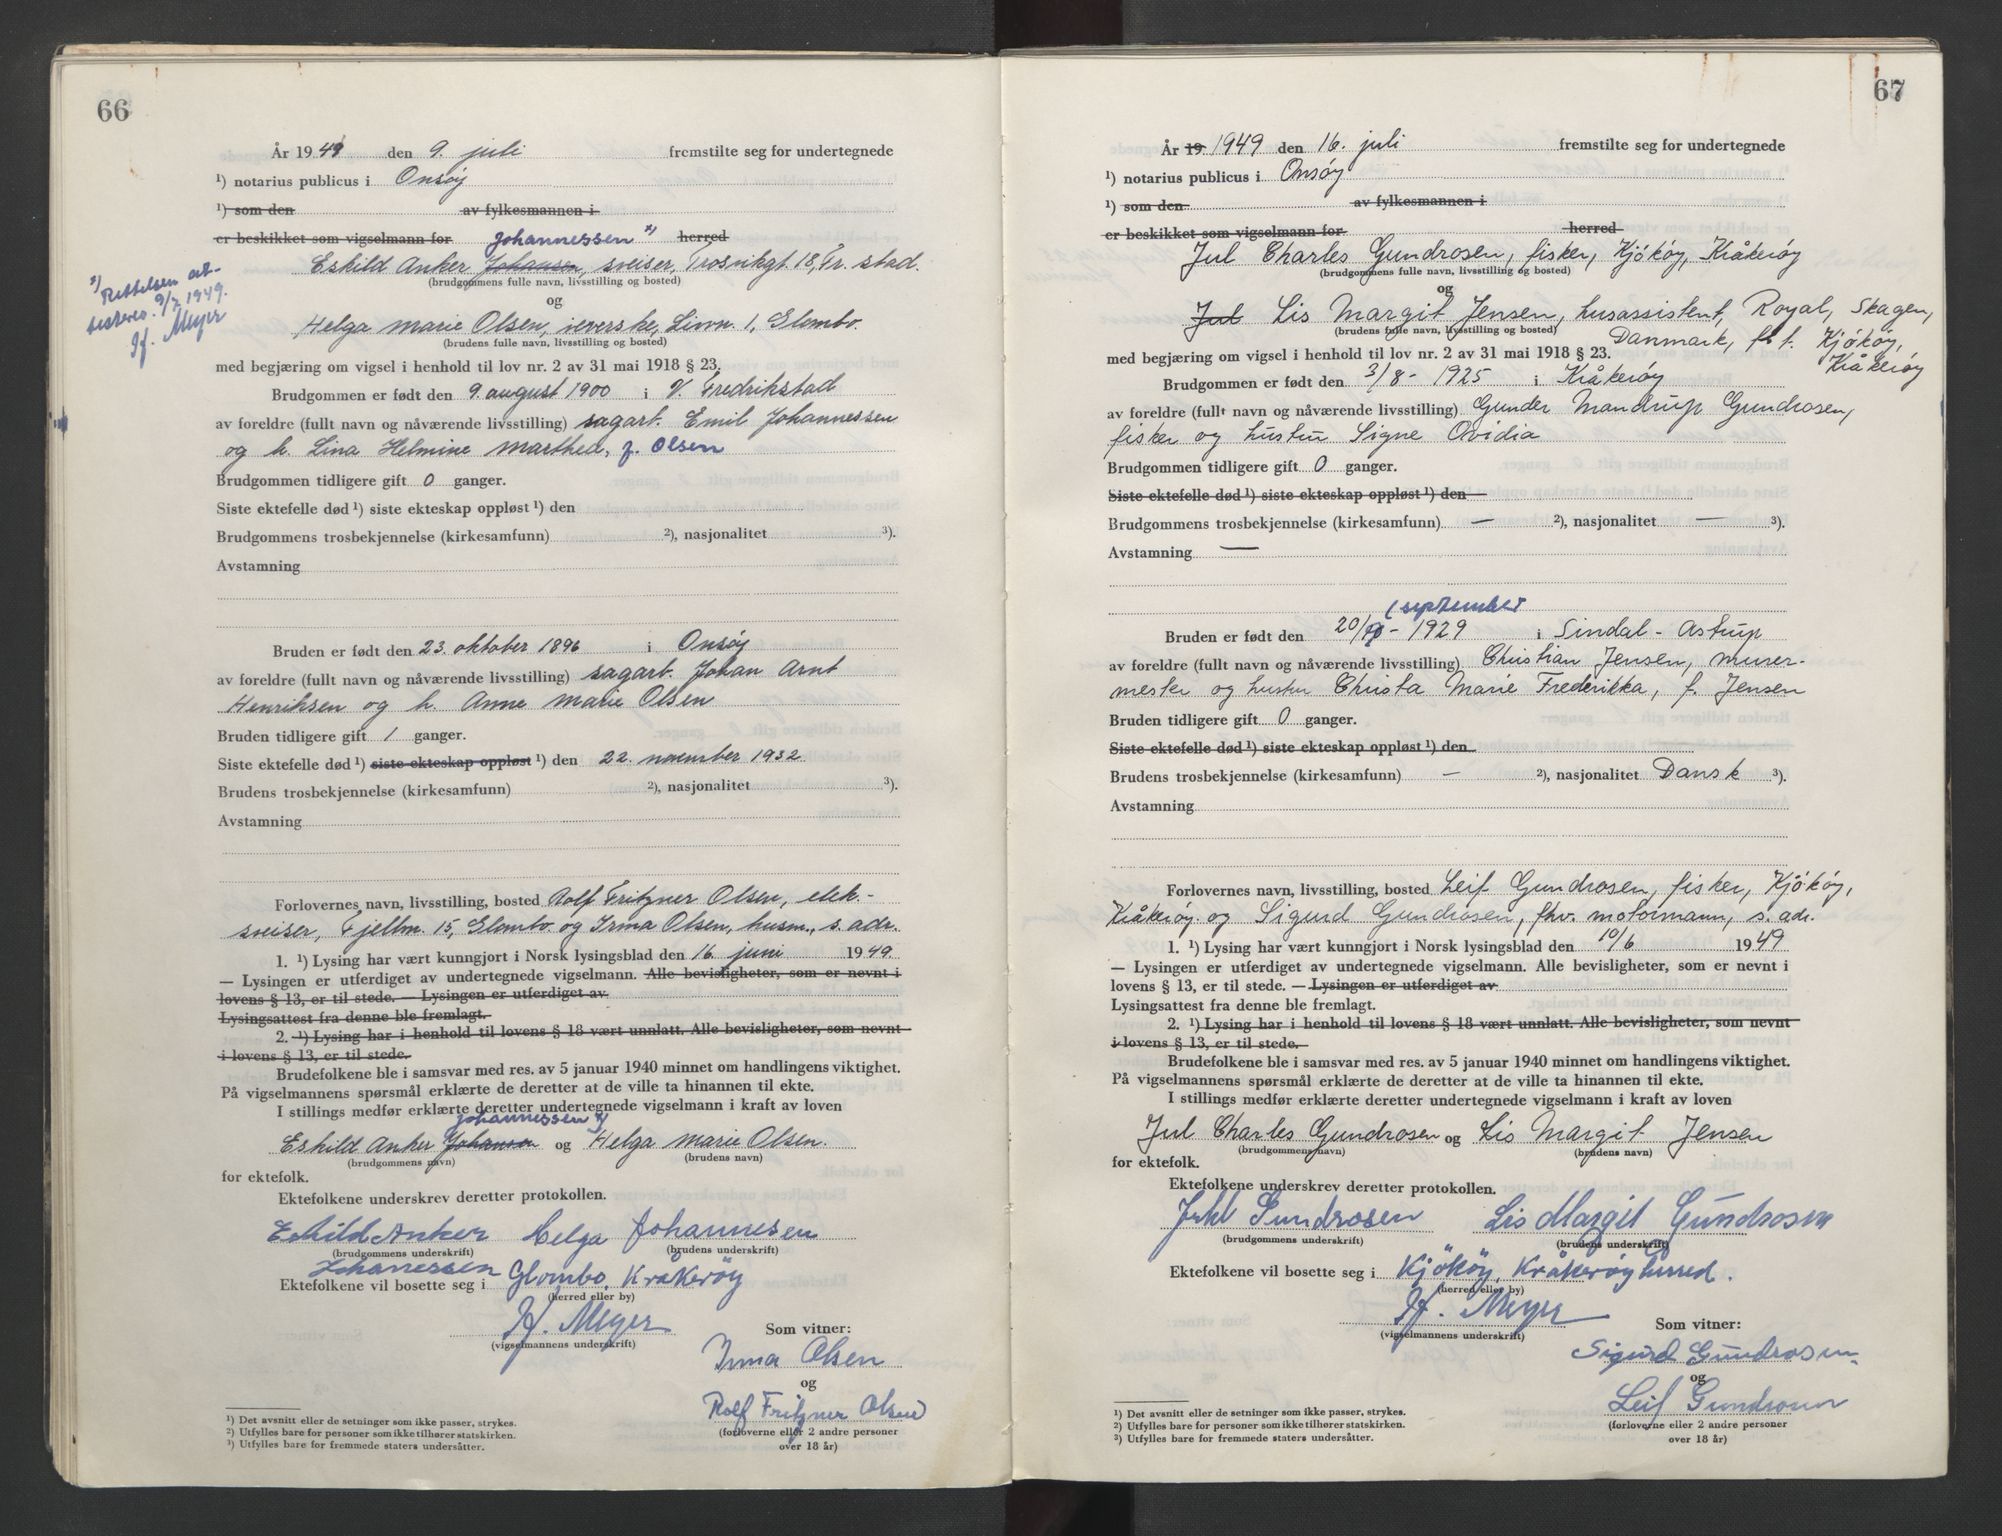 66
År 1949 den 9. juli fremstilte seg for undertegnede
¹) notarius publicus i Onsøy
¹) som den av fylkesmannen i
er beskikket som vigselmann for Johannessen ˣ) herred
Eskild Anker Johansen, sveiser, Trosvikgt. 18, Fr.stad.
(brudgommens fulle navn, livsstilling og bosted)
ˣ) Rettelsen at-
testeres. 9/7 1949.
Hf. Meyer
og
Helga Marie Olsen, veverske, Livn. 1, Glombo.
(brudens fulle navn, livsstilling og bosted)
med begjæring om vigsel i henhold til lov nr. 2 av 31 mai 1918 § 23.
Brudgommen er født den 9. august 1900 i V. Fredrikstad
av foreldre (fullt navn og nåværende livsstilling) sagarb. Emil Johannessen
og h. Lina Helmine Marthea, f. Olsen
Brudgommen tidligere gift 0 ganger.
Siste ektefelle død ¹) siste ekteskap oppløst ¹) den
Brudgommens trosbekjennelse (kirkesamfunn) ²), nasjonalitet ³).
Avstamning
Bruden er født den 23. oktober 1896 i Onsøy
av foreldre (fullt navn og nåværende livsstilling) sagarb. Johan Arnt
Henriksen og h. Anne Marie Olsen
Bruden tidligere gift 1 ganger.
Siste ektefelle død ¹) siste ekteskap oppløst ¹) den 22. november 1932
Brudens trosbekjennelse (kirkesamfunn) ²), nasjonalitet ³).
Avstamning
Forlovernes navn, livsstilling, bosted Rolf Fritzner Olsen, elek.-
sveiser, Fjellm. 15, Glombo og Irma Olsen, husm., s. adr.
1. ¹) Lysing har vært kunngjort i Norsk lysingsblad den 16. juni 1949.
— Lysingen er utferdiget av undertegnede vigselmann. Alle bevisligheter, som er nevnt i
lovens § 13, er til stede. — Lysingen er utferdiget av
Lysingsattest fra denne ble fremlagt.
2. ¹) Lysing har i henhold til lovens § 18 vært unnlatt. Alle bevisligheter, som nevnt
i lovens § 13, er til stede.
Brudefolkene ble i samsvar med res. av 5 januar 1940 minnet om handlingens viktighet.
På vigselmannens spørsmål erklærte de deretter at de ville ta hinannen til ekte.
I stillings medfør erklærte deretter undertegnede vigselmann i kraft av loven
Johannessen ˣ)
Eskild Anker Johansen og Helga Marie Olsen.
(brudgommens navn) (brudens navn)
for ektefolk.
Ektefolkene underskrev deretter protokollen.
Eskild Anker Helga Johannesen
(brudgommens underskrift) (brudens underskrift)
Johannessen
Ektefolkene vil bosette seg i Glombo, Kråkerøy
(herred eller by)
Hf. Meyer
(vigselmannens underskrift)
Som vitner:
Irma Olsen
og
Rolf Fritzner Olsen
(forloverne eller 2 andre personer
over 18 år)
¹) Det avsnitt eller de setninger som ikke passer, strykes.
²) Utfylles bare for personer som ikke tilhører statskirken.
³) Utfylles bare for fremmede staters undersåtter.
67
År 19 1949 den 16. juli fremstilte seg for undertegnede
¹) notarius publicus i Onsøy
¹) som den av fylkesmannen i
er beskikket som vigselmann for herred
Jul Charles Gundrosen, fisker, Kjøkøy, Kråkerøy
(brudgommens fulle navn, livsstilling og bosted)
og
Jul Lis Margit Jensen, husassistent, Royal, Skagen,
(brudens fulle navn, livsstilling og bosted)
Danmark, f.t. Kjøkøy,
Kråkerøy
med begjæring om vigsel i henhold til lov nr. 2 av 31 mai 1918 § 23.
Brudgommen er født den 3/8 - 1925 i Kråkerøy
av foreldre (fullt navn og nåværende livsstilling) Gunder Mandrup Gundrosen,
fisker og hustru Signe Ovidia
Brudgommen tidligere gift 0 ganger.
Siste ektefelle død ¹) siste ekteskap oppløst ¹) den
Brudgommens trosbekjennelse (kirkesamfunn) — ²), nasjonalitet — ³).
Avstamning —
september
Bruden er født den 20/9 - 1929 i Sindal - Astrup
av foreldre (fullt navn og nåværende livsstilling) Christian Jensen, murer-
mester og hustru Christa Marie Frederikka, f. Jensen
Bruden tidligere gift 0 ganger.
Siste ektefelle død ¹) siste ekteskap oppløst ¹) den
Brudens trosbekjennelse (kirkesamfunn) — ²), nasjonalitet Dansk ³).
Avstamning
Forlovernes navn, livsstilling, bosted Leif Gundrosen, fisker, Kjøkøy,
Kråkerøy og Sigurd Gundrosen, fhv. motormann, s. adr.
1. ¹) Lysing har vært kunngjort i Norsk lysingsblad den 10/6 1949
— Lysingen er utferdiget av undertegnede vigselmann. Alle bevisligheter, som er nevnt i
lovens § 13, er til stede. — Lysingen er utferdiget av
Lysingsattest fra denne ble fremlagt.
2. ¹) Lysing har i henhold til lovens § 18 vært unnlatt. Alle bevisligheter, som nevnt
i lovens § 13, er til stede.
Brudefolkene ble i samsvar med res. av 5 januar 1940 minnet om handlingens viktighet.
På vigselmannens spørsmål erklærte de deretter at de ville ta hinannen til ekte.
I stillings medfør erklærte deretter undertegnede vigselmann i kraft av loven
Jul Charles Gundrosen og Lis Margit Jensen
(brudgommens navn) (brudens navn)
for ektefolk.
Ektefolkene underskrev deretter protokollen.
Juhl Gundrosen Lis Margit Gundrosen
(brudgommens underskrift) (brudens underskrift)
Ektefolkene vil bosette seg i Kjøkøy, Kråkerøy herred.
(herred eller by)
Hf. Meyer
(vigselmannens underskrift)
Som vitner:
Sigurd Gundrosen
og
Leif Gundrosen
(forloverne eller 2 andre personer
over 18 år)
¹) Det avsnitt eller de setninger som ikke passer, strykes.
²) Utfylles bare for personer som ikke tilhører statskirken.
³) Utfylles bare for fremmede staters undersåtter.